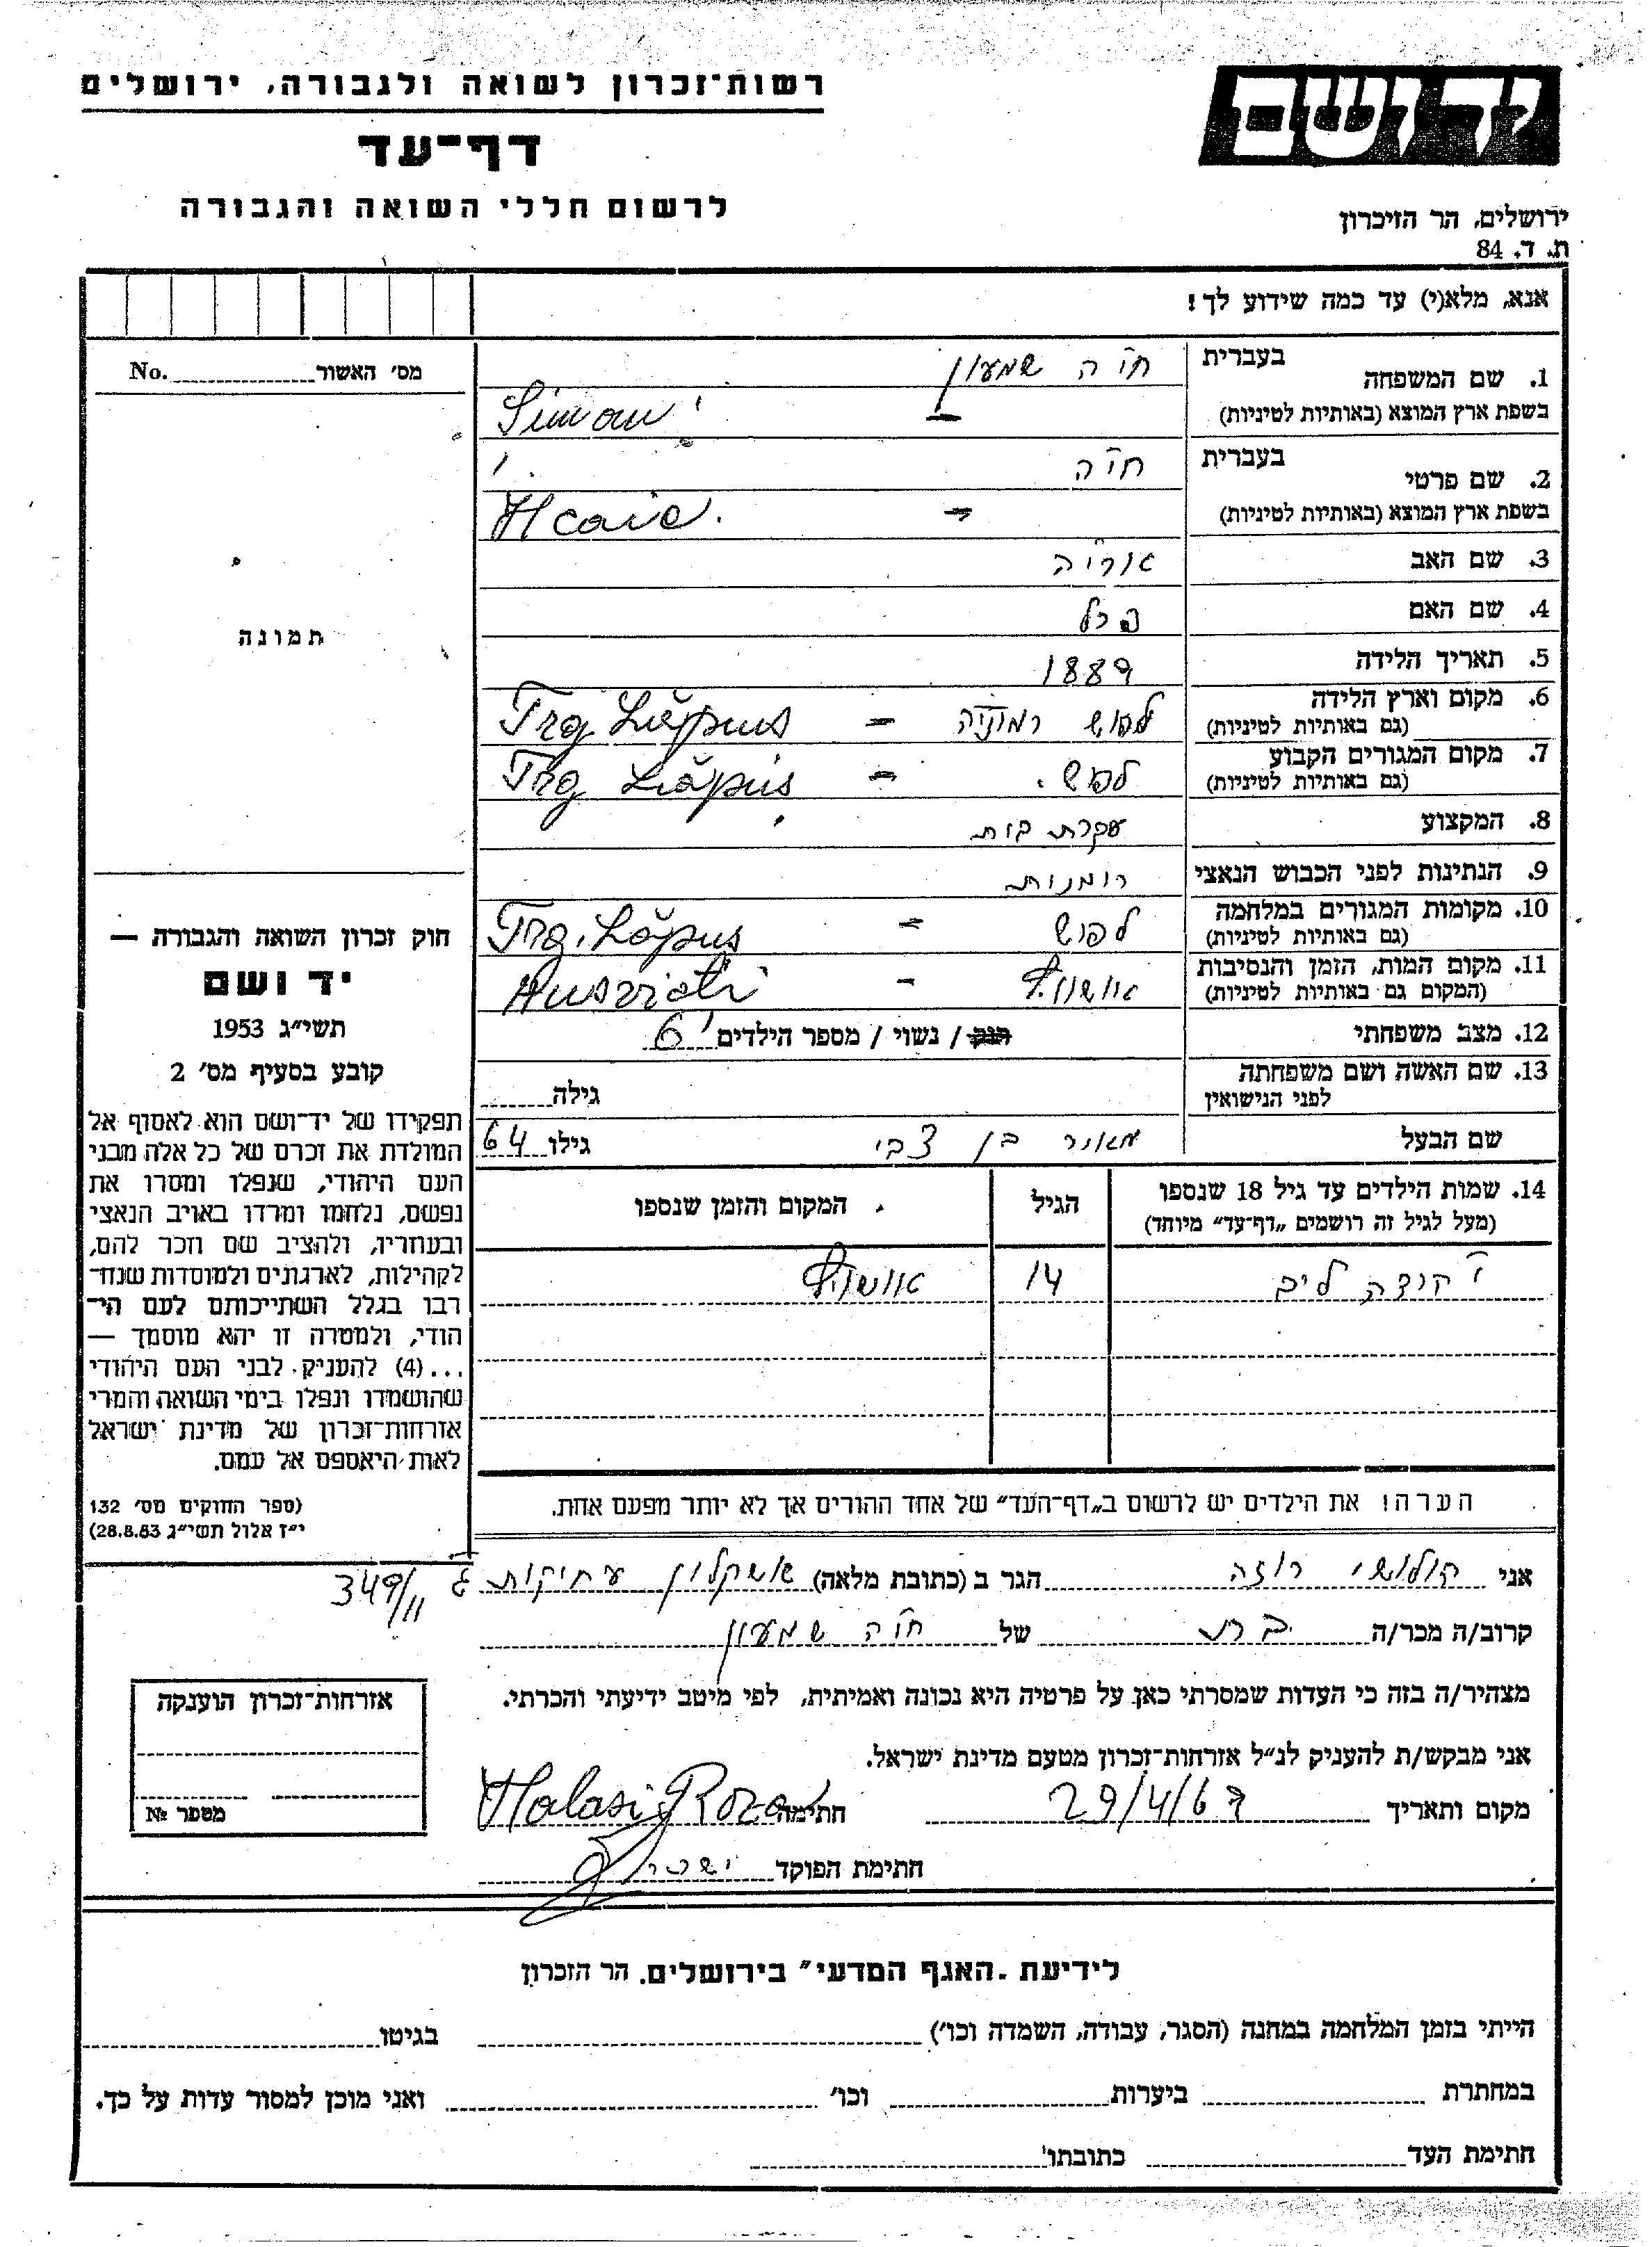 רשות־זכרון לשואה ולגבורה, ירושלים
דף־עד
לרשום חללי השואה והגבורה
יד ושם
ירושלים, הר הזיכרון
ת. ד. 84
אנא, מלא(י) עד כמה שידוע לך!
1. שם המשפחה
בעברית חיה שמעון
בשפת ארץ המוצא (באותיות לטיניות) – Simon
2. שם פרטי
בעברית חיה
בשפת ארץ המוצא (באותיות לטיניות) –
3. שם האב אריה
4. שם האם פרל
5. תאריך הלידה 1889
6. מקום וארץ הלידה
(גם באותיות לטיניות) לפוש רמוניה – Trg Lăpus
7. מקום המגורים הקבוע
(גם באותיות לטיניות) לפוש. – Trg Lăpus
8. המקצוע עקרת בית
9. הנתינות לפני הכבוש הנאצי רומנית
10. מקומות המגורים במלחמה
(גם באותיות לטיניות) לפוש – Trg. Lăpus
11. מקום המות, הזמן והנסיבות
(המקום גם באותיות לטיניות) אושויץ –
12. מצב משפחתי רוק / נשוי / מספר הילדים 6
13. שם האשה ושם משפחתה
לפני הנישואין גילה
שם הבעל מאיר בן צבי גילו 64
14. שמות הילדים עד גיל 18 שנספו
(מעל לגיל זה רושמים „דף־עד״ מיוחד)
הגיל
המקום והזמן שנספו
ליב 14 אושויץ
הערה! את הילדים יש לרשום ב„דף־העד״ של אחד ההורים אך לא יותר מפעם אחת.
מס׳ האשור No.
תמונה
חוק זכרון השואה והגבורה —
יד ושם
תשי״ג 1953
קובע בסעיף מס׳ 2
תפקידו של יד־ושם הוא לאסוף אל
המולדת את זכרם של כל אלה מבני
העם היהודי, שנפלו ומסרו את
נפשם, נלחמו ומרדו באויב הנאצי
ובעוזריו, ולהציב שם וזכר להם,
לקהילות, לארגונים ולמוסדות שנח־
רבו בגלל השתייכותם לעם הי־
הודי, ולמטרה זו יהא מוסמך —
...(4) להעניק לבני העם היהודי
שהושמדו ונפלו בימי השואה והמרי
אזרחות־זכרון של מדינת ישראל
לאות היאספם אל עמם.
(ספר החוקים מס׳ 132
י״ז אלול תשי״ג 28.8.53)
אני רוזה הגר ב (כתובת מלאה) אשקלון עתיקות ג 349/11
קרוב/ה מכר/ה בת של חיה שמעון
מצהיר/ה בזה כי העדות שמסרתי כאן על פרטיה היא נכונה ואמיתית, לפי מיטב ידיעתי והכרתי.
אני מבקש/ת להעניק לנ״ל אזרחות־זכרון מטעם מדינת ישראל.
מקום ותאריך 29/4/69 חתימה Halasi Roza
חתימת הפוקד
אזרחות־זכרון הוענקה
מספר №
לידיעת „האגף המדעי״ בירושלים, הר הזכרון
הייתי בזמן המלחמה במחנה (הסגר, עבודה, השמדה וכו׳) בגיטו
במחתרת ביערות וכו׳ ואני מוכן למסור עדות על כך.
חתימת העד כתובתו